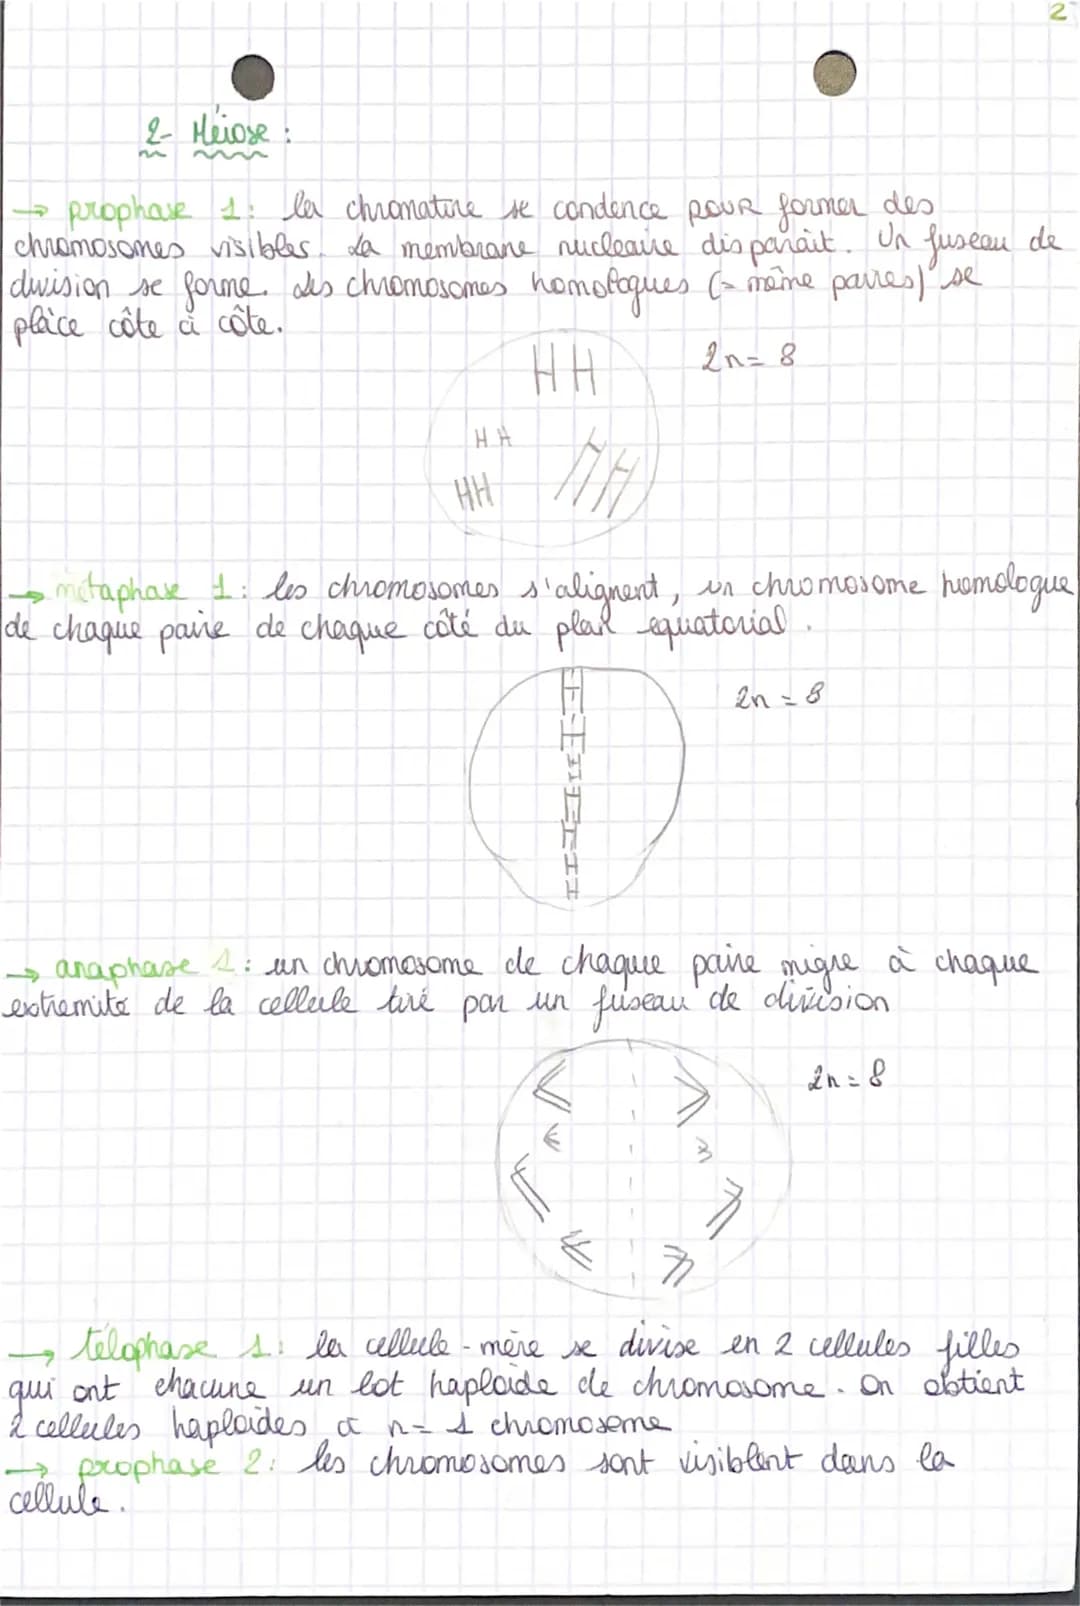 2
2- Méiose :
→ prophase 1: la chromatine se condence pour former des
chromosomes visibles. La membrane nucleaire disparaît. Un fuseau de
division se forme. Les chromosomes homologues (= même paires) se
place côte à côte.
2n = 8
→ métaphase 1: les chromosomes s'alignent, un chromosome homologue
de chaque paire de chaque côté du plan equatorial.
2n = 8
→ anaphase 1: un chromosome de chaque paire migre à chaque
extremité de la cellule tiré par un fuseau de division
2n = 8
→ télophase 1: la cellule-mère se divise en 2 cellules filles
qui ont chacune un lot haploïde de chromosome. On obtient
2 cellules haploïdes à n = 1 chromosome
→ prophase 2: les chromosomes sont visiblent dans la
cellule.